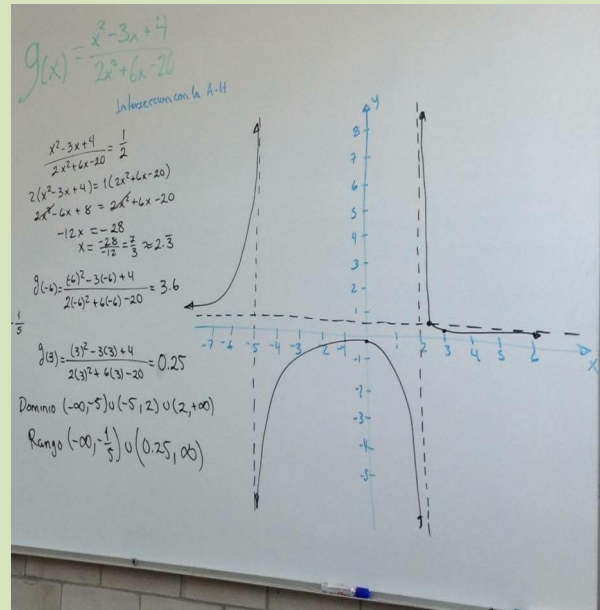 g(x) = x²-3x+4 / 2x²+6x-20
Intersección con la A.H
x²-3x+4 / 2x²+6x-20 = 1/2
2(x²-3x+4) = 1(2x²+6x-20)
2x²-6x+8 = 2x²+6x-20
-12x = -28
x = -28/-12 = 7/3 ≈ 2.3̅
g(-6) = (-6)²-3(-6)+4 / 2(-6)²+6(-6)-20 = 3.6
-1/5
g(3) = (3)²-3(3)+4 / 2(3)²+6(3)-20 = 0.25
Dominio (-∞,-5)∪(-5,2)∪(2,+∞)
Rango (-∞,-1/5)∪(0.25,∞)
y
8
7
6
5
4
3
2
1
-7 -6 -5 -4 -3 -2 -1 1 2 3 4 5 6
x
-1
-2
-3
-4
-5